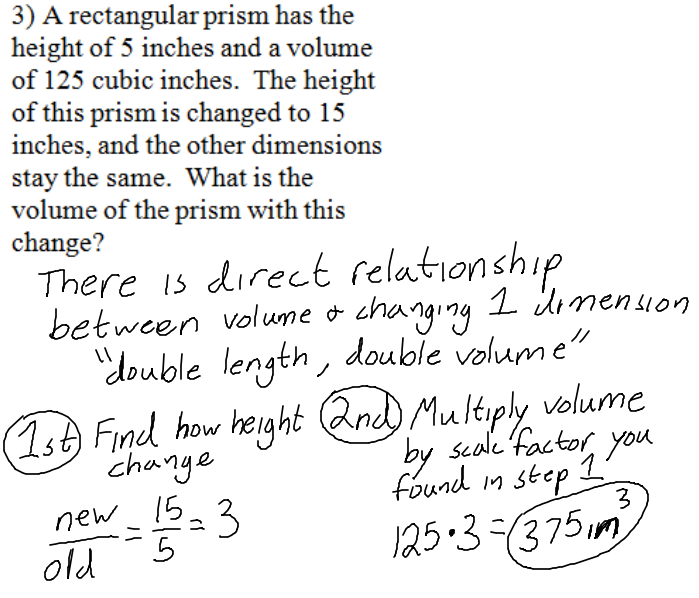 3) A rectangular prism has the
height of 5 inches and a volume
of 125 cubic inches.  The height
of this prism is changed to 15
inches, and the other dimensions
stay the same.  What is the
volume of the prism with this
change?
There is direct relationship
between volume & changing 1 dimension
"double length, double volume"
1st Find how height
change
new/old = 15/5 = 3
2nd Multiply volume
by scale factor you
found in step 1
125·3 = 375 in³